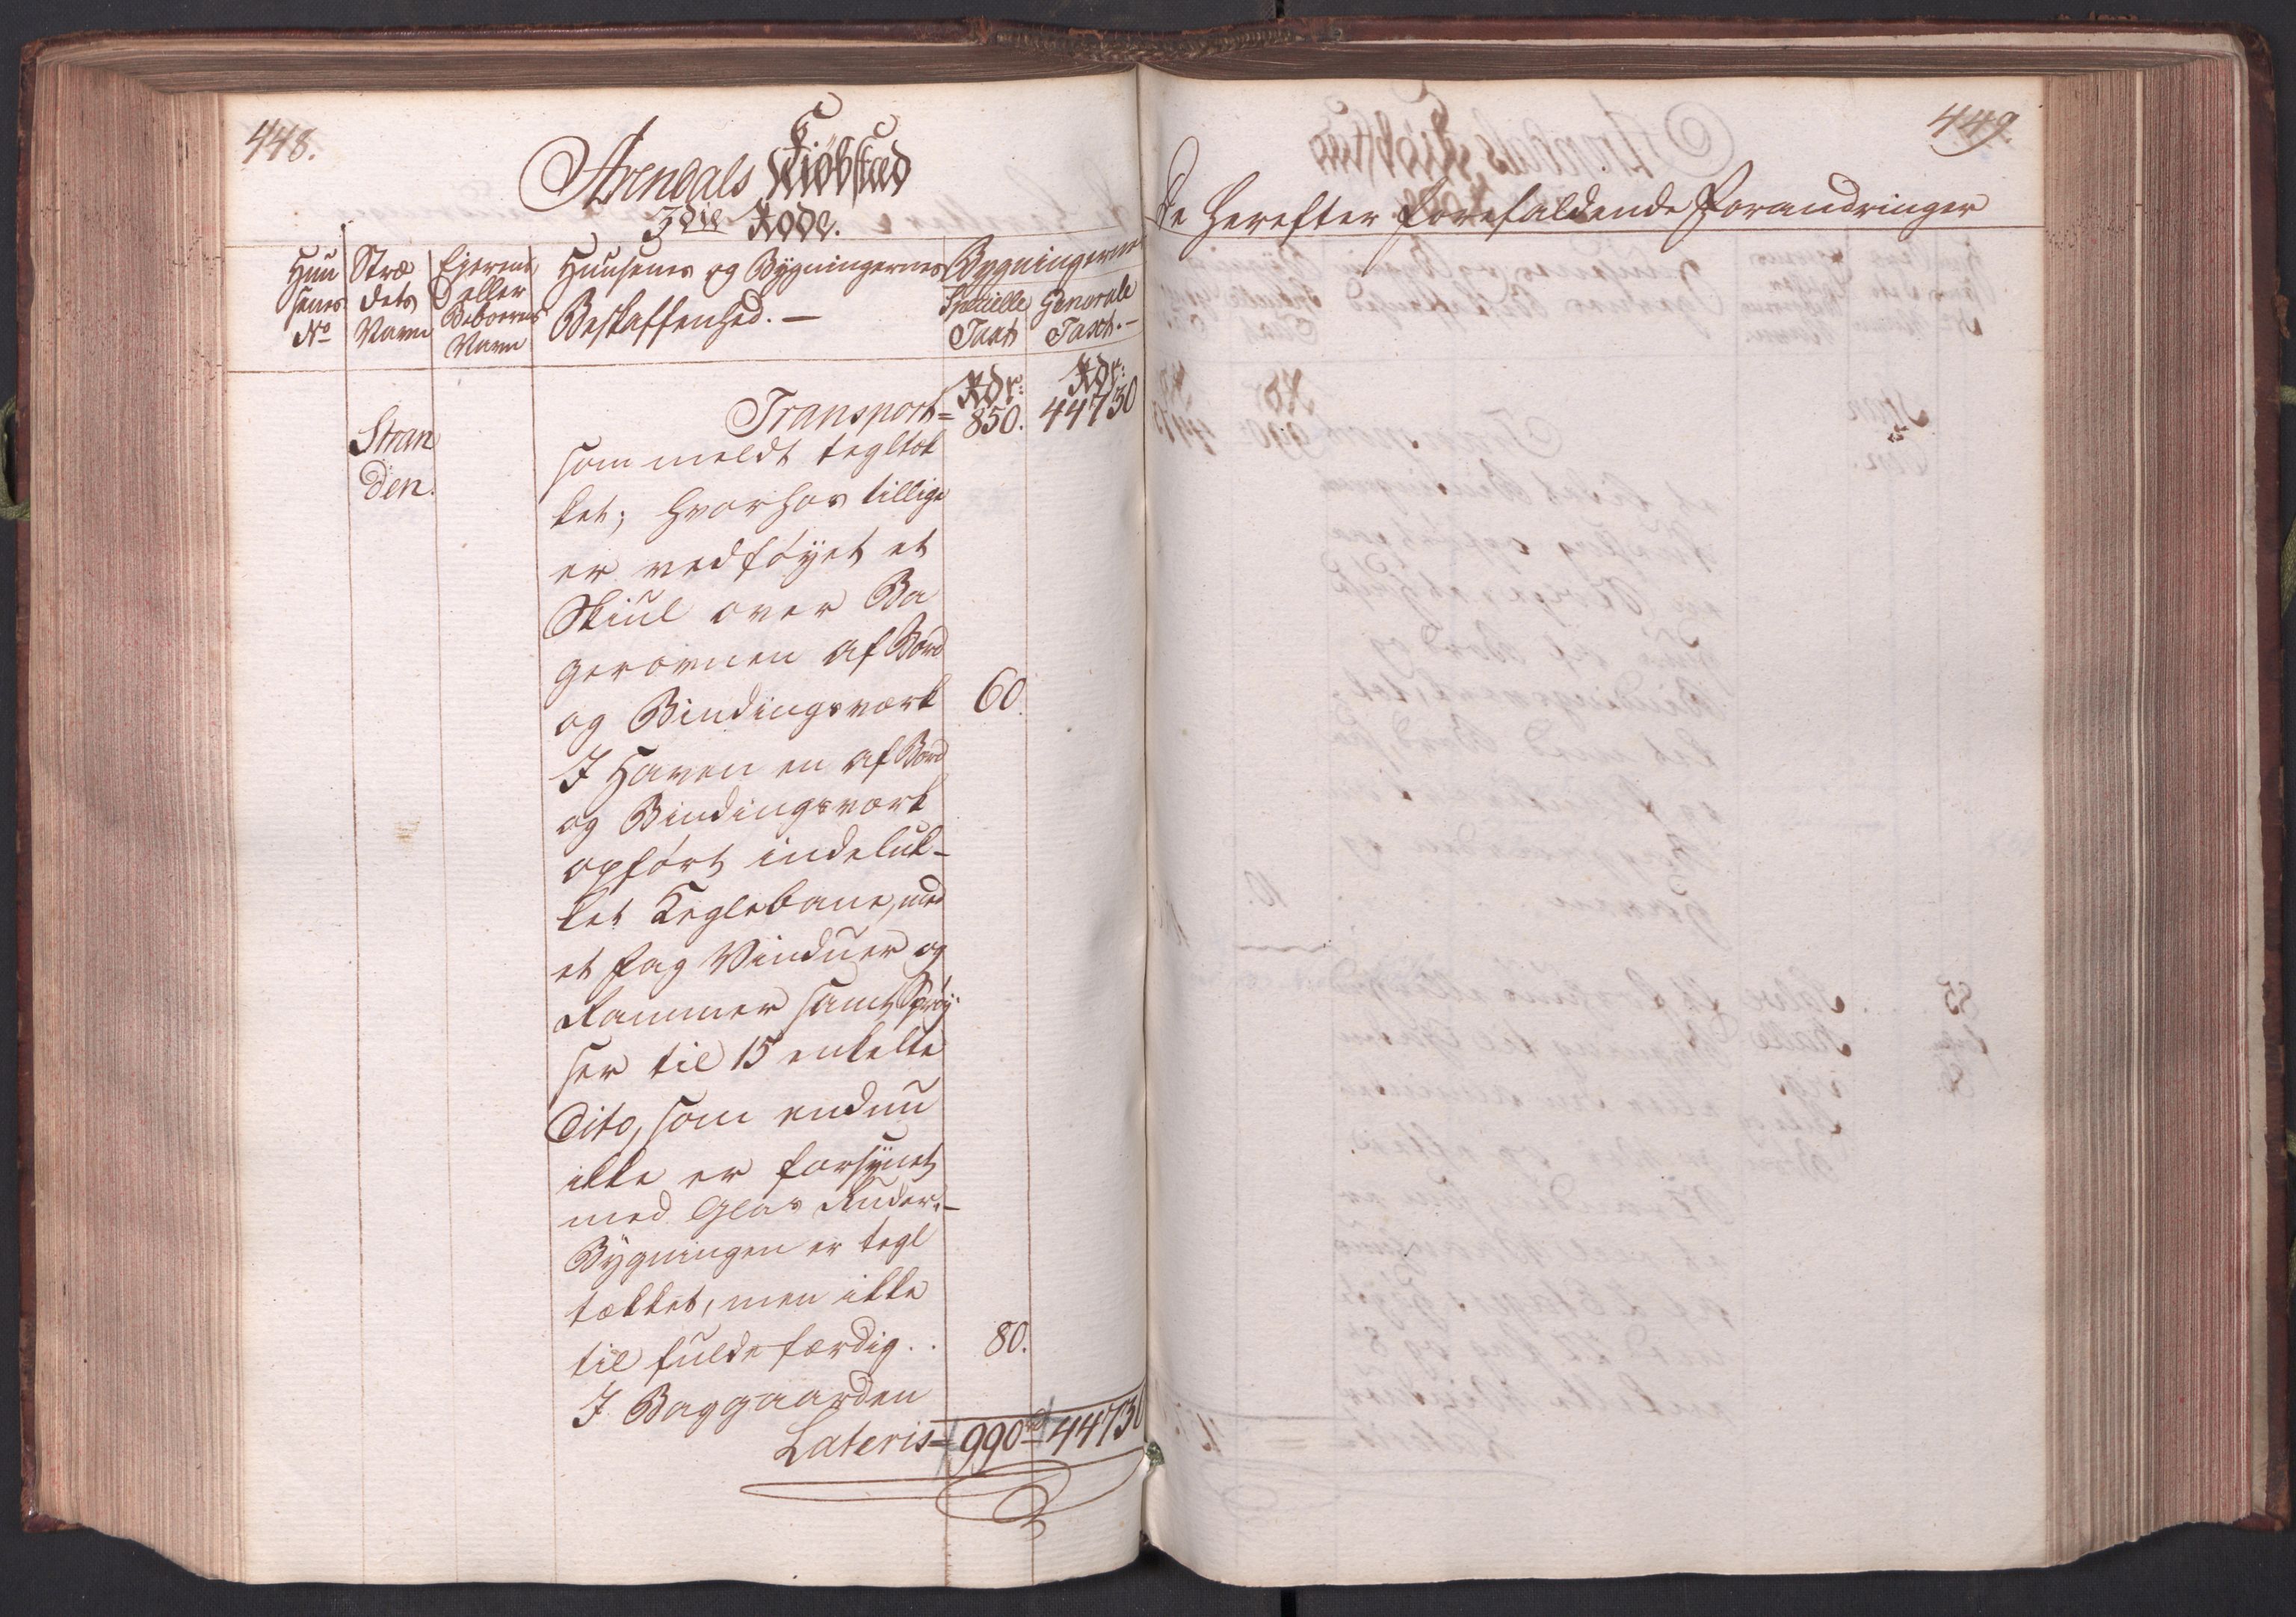 448.
Arendals Kiøbstæd
3die Rode.
Huu
senes
No
Stræ
dets
Navn
Ejerens
eller
Beboernes
Navn
Huusenes og Bygningernes
Beskaffenhed. —
Bygningernes
Specielle
Taxt
Generale
Taxt. —
Rdr:
Rdr:
Transport =
850.
44730
Stran
den.
som meldt tegltæk
ket; hvorhos tillige
er vedføyet et
Skiul over Ba
gerovnen af Bord
og Bindingsværk
60.
I Haven en af Bord
og Bindingsværk
opført indeluk-
ket Keglebane, med
et fag Vinduer og
Rammer samt Sprøj
ser til 15 enkelte
Dito, som endnu
ikke er forsynet
med Glas Ruder. —
Bygningen er tegl
tækket, men ikke
til fulde færdig. .
80.
I Baggaarden
Lateris =
990
44730
449
De herefter forefaldende Forandringer